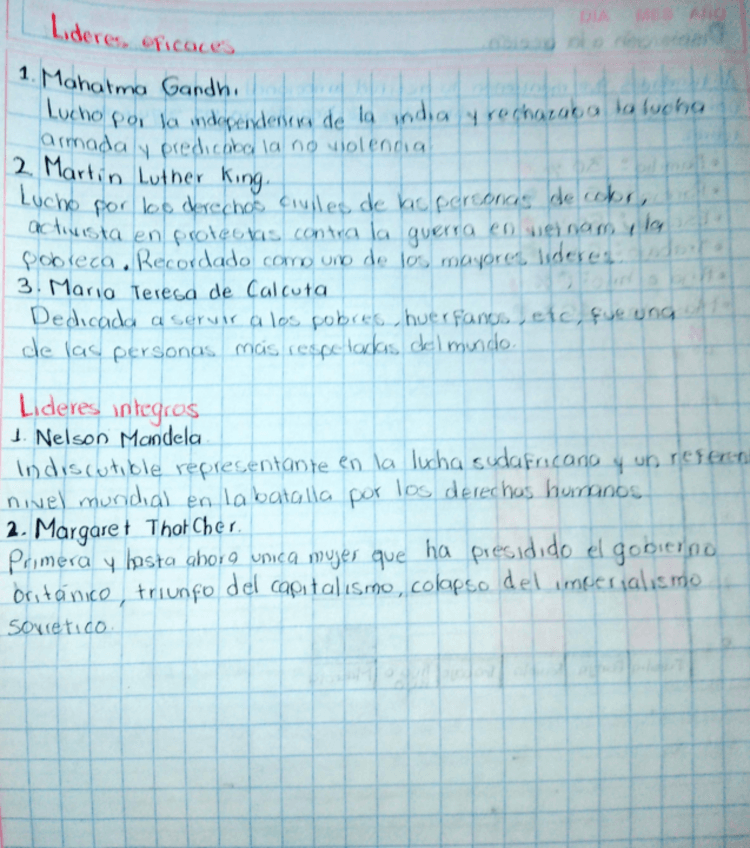 DIA MES AÑO
Lideres eficaces
1. Mahatma Gandhi
Lucho por la independencia de la india y rechazaba la lucha
armada y predicaba la no violencia
2 Martin Luther King.
Lucho por los derechos civiles de las personas de color,
activista en protestas contra la guerra en vietnam y la
pobreca. Recordado como uno de los mayores lideres.
3. Maria Teresa de Calcuta
Dedicada a servir a los pobres, huerfanos, etc, fue una
de las personas más respetadas del mundo.
Lideres integros
1. Nelson Mandela
Indiscutible representante en la lucha sudafricana y un referen
nivel mundial en la batalla por los derechos humanos
2. Margaret Thatcher.
Primera y hasta ahora unica mujer que ha presidido el gobierno
británico, triunfo del capitalismo, colapso del imperialismo
sovietico.